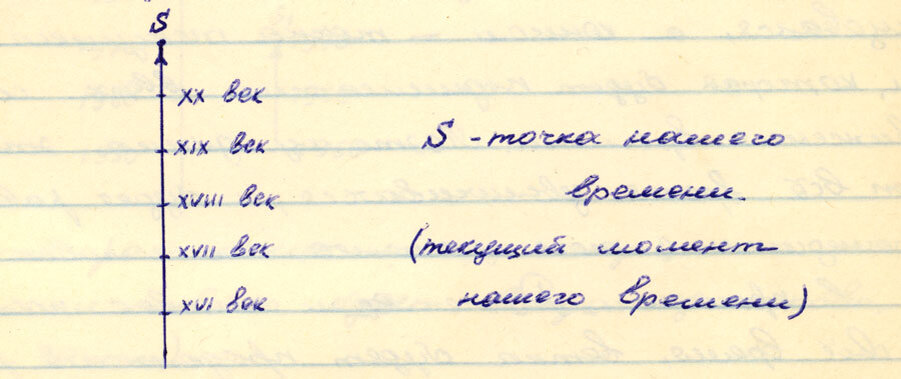 S
XX век
XIX век
XVIII век
XVII век
XVI век
S - точка нашего
времени.
(текущий момент
нашего времени)